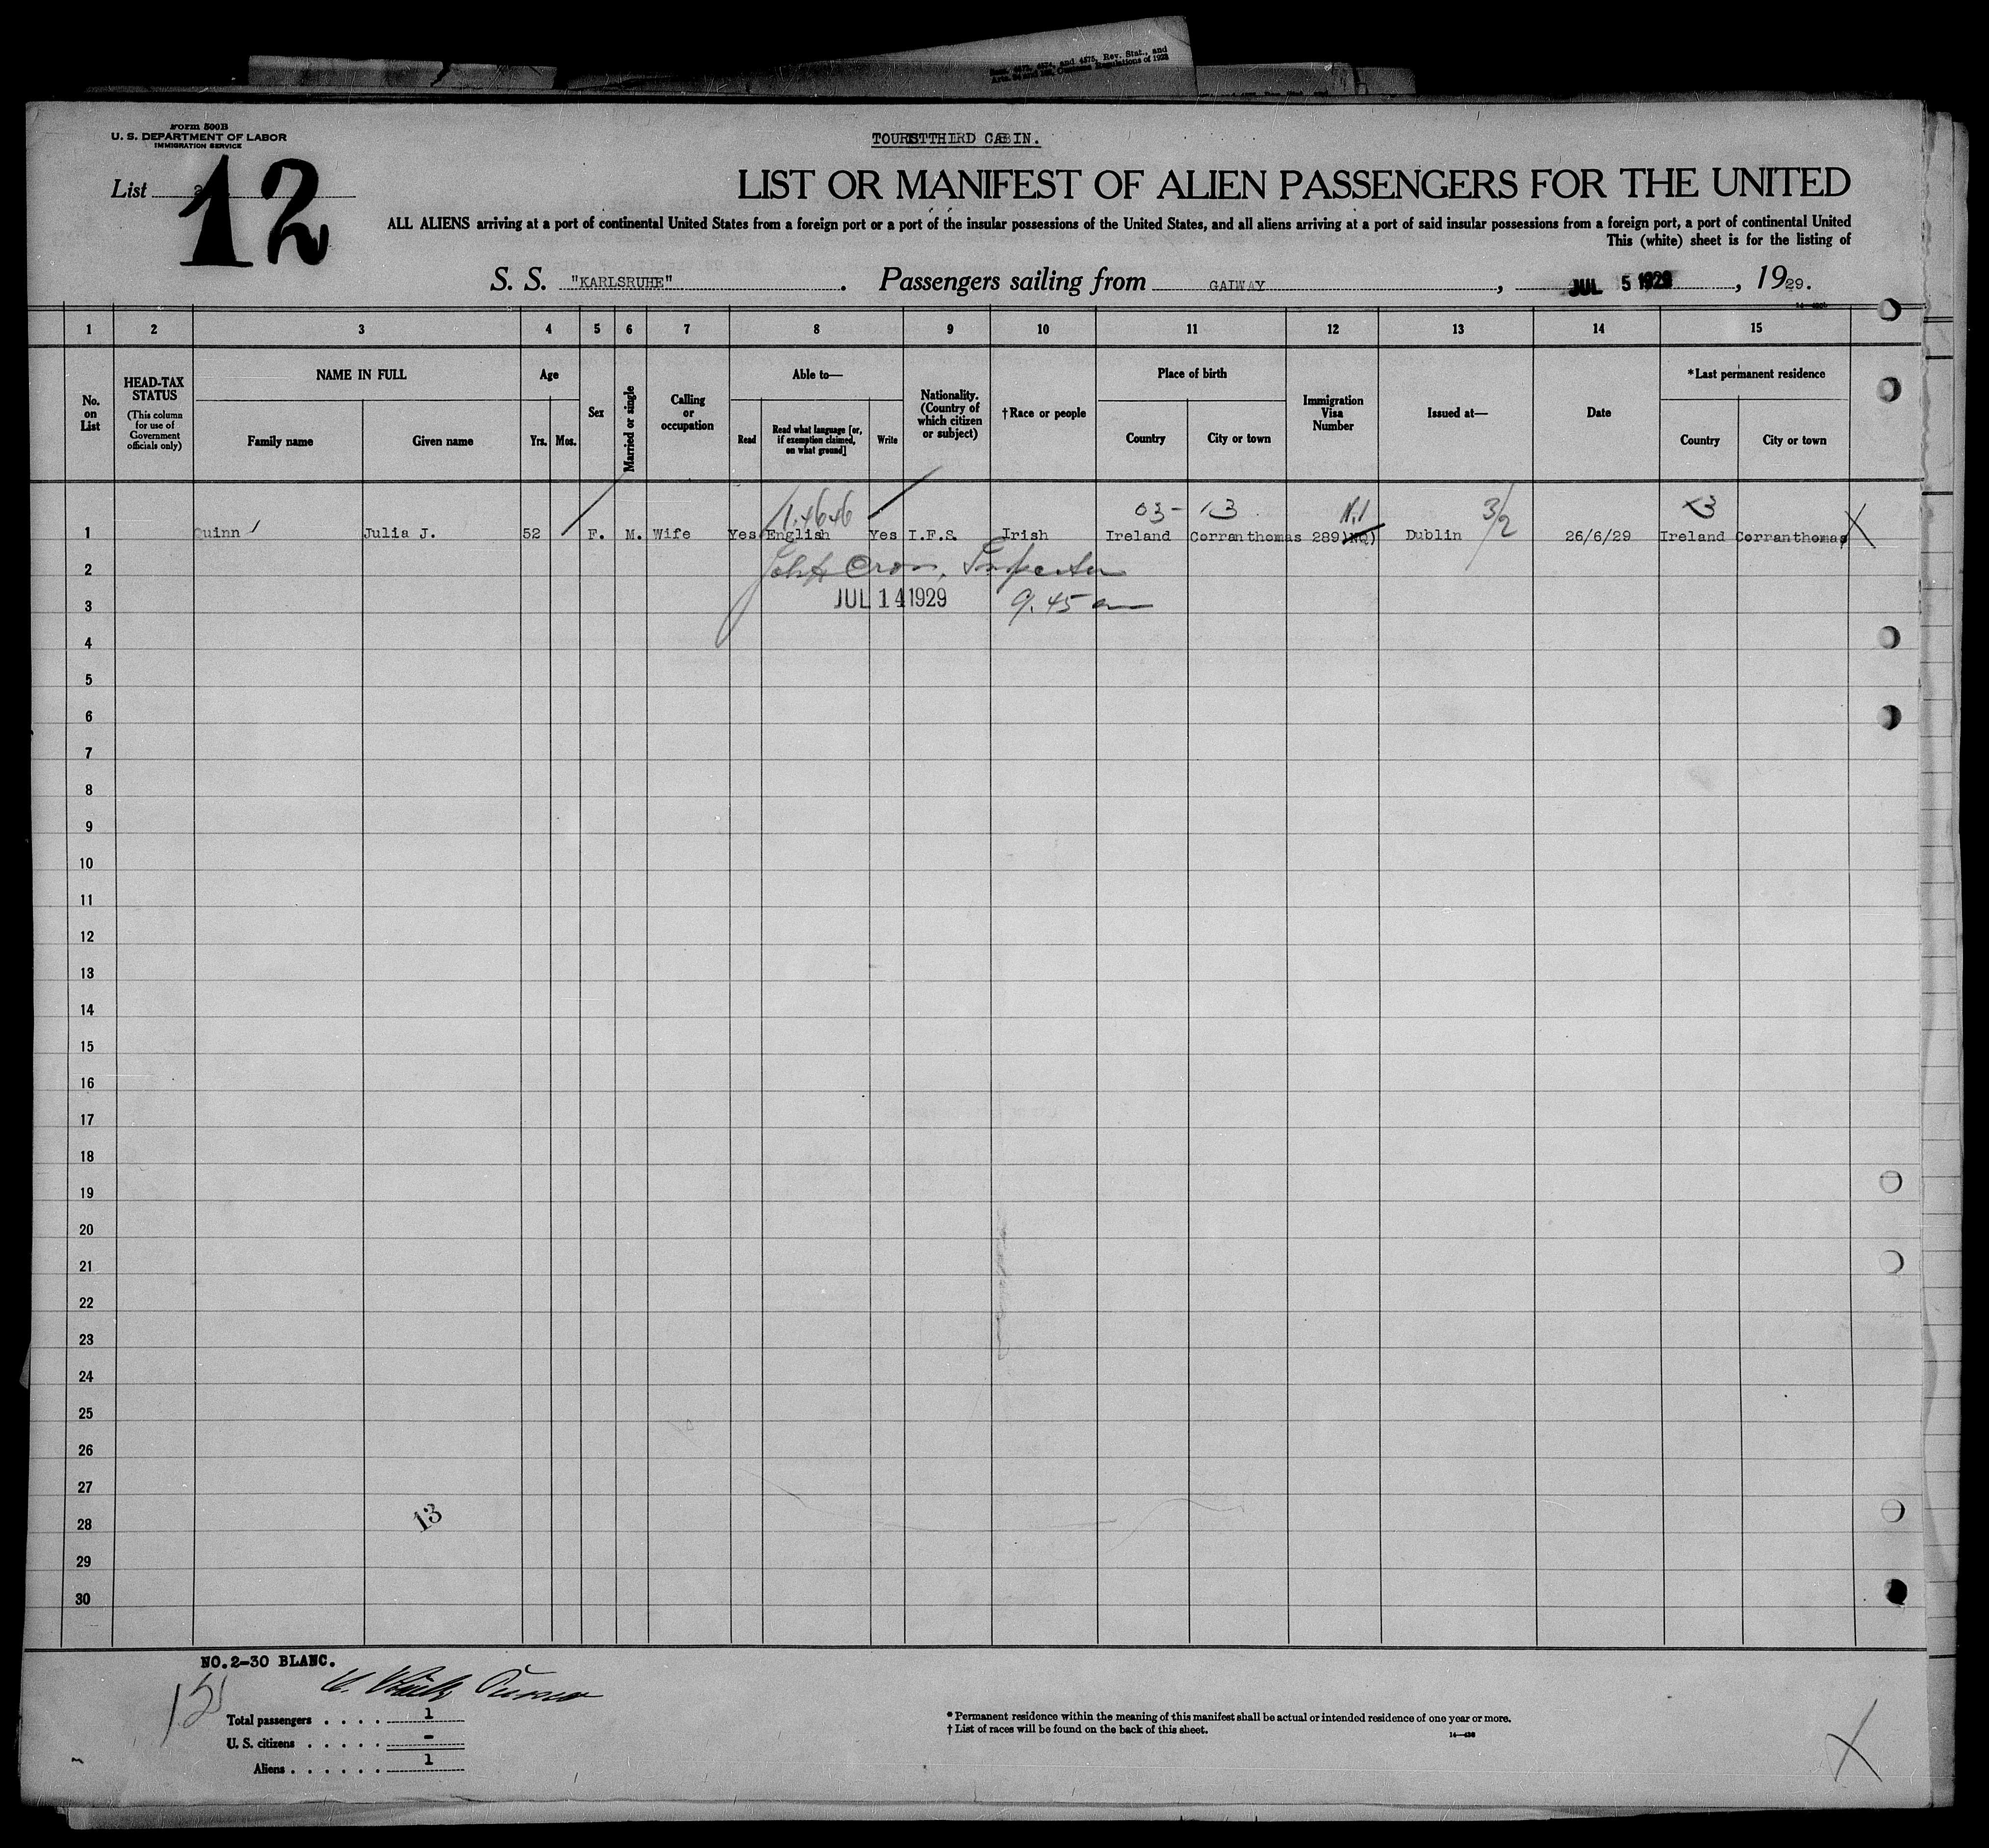 Secs. 4573, 4574, and 4575, Rev. Stat., and
Form 500B
U. S. DEPARTMENT OF LABOR
IMMIGRATION SERVICE
TOURIST THIRD CABIN.
List
12
LIST OR MANIFEST OF ALIEN PASSENGERS FOR THE UNITED
ALL ALIENS arriving at a port of continental United States from a foreign port or a port of the insular possessions of the United States, and all aliens arriving at a port of said insular possessions from a foreign port, a port of continental United
This (white) sheet is for the listing of
S. S. "KARLSRUHE". Passengers sailing from GALWAY, JUL 5 1929, 1929.
1 2 3 4 5 6 7 8 9 10 11 12 13 14 15
No. on List
HEAD-TAX STATUS
(This column for use of Government officials only)
NAME IN FULL
Family name Given name
Age
Yrs. Mos.
Sex
Married or single
Calling or occupation
Able to—
Read Read what language [or, if exemption claimed, on what ground] Write
Nationality. (Country of which citizen or subject)
†Race or people
Place of birth
Country City or town
Immigration Visa Number
Issued at—
Date
*Last permanent residence
Country City or town
1.4646 03- 13 3/2 x3
1 Quinn Julia J. 52 F. M. Wife Yes English Yes I.F.S. Irish Ireland Corranthomas 289 NQ) Dublin 26/6/29 Ireland Corranthomas X
2 Inspector
3 JUL 14 1929 9.45 am
4
5
6
7
8
9
10
11
12
13
14
15
16
17
18
19
20
21
22
23
24
25
26
27
28 13
29
30
NO.2-30 BLANC.
Total passengers . . . . 1
U. S. citizens . . . . . -
Aliens . . . . . . 1
* Permanent residence within the meaning of this manifest shall be actual or intended residence of one year or more.
† List of races will be found on the back of this sheet.
X